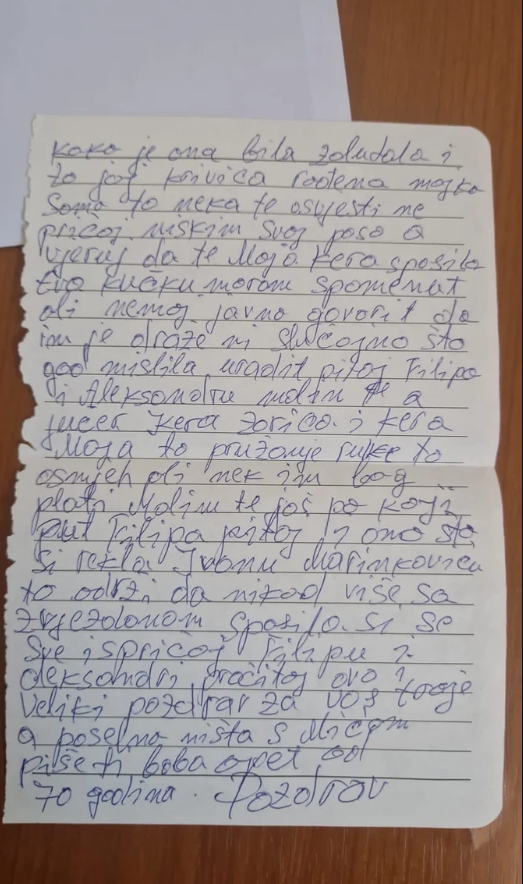 kako je ona bila zaludala i
to joj krivica rođena majka
Samo to neka te osvjesti ne
pričaj niskim svoj posa a
vjeruj da te Moja Kera spasila
Evo kučku moram spomenut
ali nemoj javno govorit da
im je draže ni slučajno što
god mislila uradit pitaj Filipa
i Aleksandru molim te a
jučer Kera Zorica i Kera
Moja to pružanje ruke to
osmjeh ali nek im bog
plati Molim te još po koji
put Filipa pitaj i ono što
si rekla Ivanu Marinkoviću
to održi da nikad više sa
zvjezdanom Spasila si se
Sve ispričaj Filipu i
aleksandri pročitaj ovo i
veliki pozdrav za vas troje
a posebno ništa s Micom
piše ti baba opet od
70 godina. Pozdrav